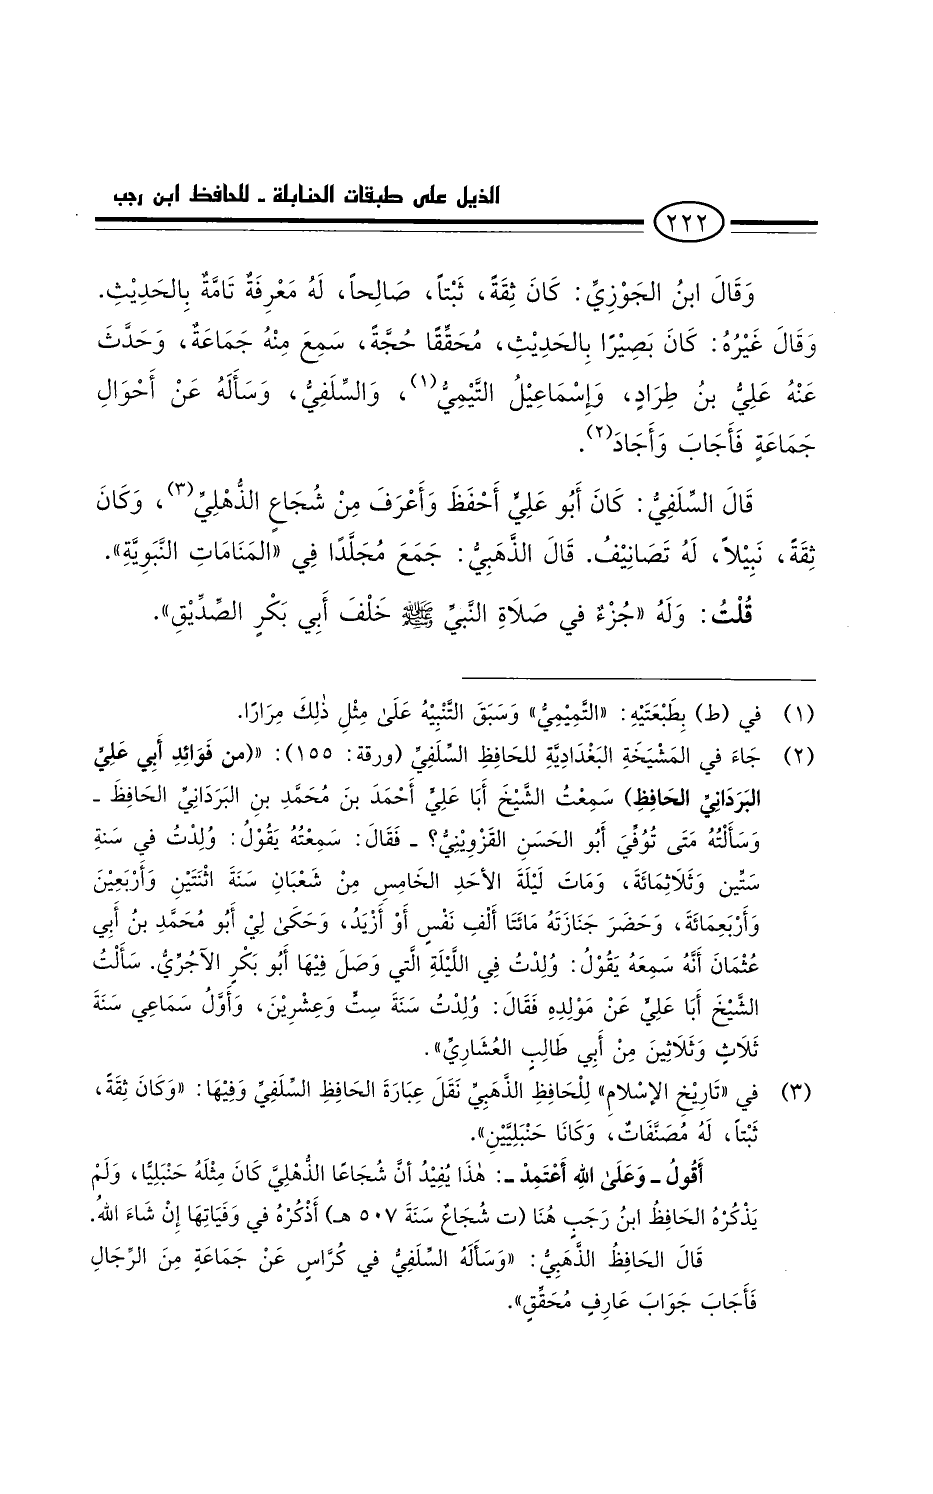 الذيل على طبقات الحنابلة ـ للحافظ ابن رجب
٢٢٢
وَقَالَ ابنُ الجَوْزِيِّ: كَانَ ثِقَةً، ثَبْتاً، صَالِحاً، لَهُ مَعْرِفَةٌ تَامَّةٌ بِالحَدِيْثِ.
وَقَالَ غَيْرُهُ: كَانَ بَصِيْرًا بِالحَدِيْثِ، مُحَقِّقًا حُجَّةً، سَمِعَ مِنْهُ جَمَاعَةٌ، وَحَدَّثَ
عَنْهُ عَلِيُّ بنُ طِرَادٍ، وَإِسْمَاعِيْلُ التَّيْمِيُّ(١)، وَالسِّلَفِيُّ، وَسَأَلَهُ عَنْ أَحْوَالِ
جَمَاعَةٍ فَأَجَابَ وَأَجَادَ(٢).
قَالَ السِّلَفِيُّ: كَانَ أَبُو عَلِيٍّ أَحْفَظَ وَأَعْرَفَ مِنْ شُجَاعٍ الذُّهْلِيِّ(٣)، وَكَانَ
ثِقَةً، نَبِيْلاً، لَهُ تَصَانِيْفُ. قَالَ الذَّهَبِيُّ: جَمَعَ مُجَلَّدًا فِي «المَنَامَاتِ النَّبَوِيَّةِ».
قُلْتُ: وَلَهُ «جُزْءٌ في صَلَاةِ النَّبِيِّ ﷺ خَلْفَ أَبِي بَكْرٍ الصِّدِّيْقِ».
(١) في (ط) بِطَبْعَتَيْهِ: «التَّمِيْمِيُّ» وَسَبَقَ التَّنْبِيْهُ عَلَىٰ مِثْلِ ذٰلِكَ مِرَارًا.
(٢) جَاءَ في المَشْيَخَةِ البَغْدَادِيَّةِ للحَافِظِ السِّلَفِيِّ (ورقة: ١٥٥): «(من فَوَائِدِ أَبِي عَلِيٍّ
البَرَدَانِيِّ الحَافِظِ) سَمِعْتُ الشَّيْخَ أَبَا عَلِيٍّ أَحْمَدَ بنَ مُحَمَّدِ بنِ البَرَدَانِيِّ الحَافِظَ ـ
وَسَأَلْتُهُ مَتَى تُوُفِّيَ أَبُو الحَسَنِ القَزْوِيْنِيُّ؟ ـ فَقَالَ: سَمِعْتُهُ يَقُوْلُ: وُلِدْتُ في سَنَةِ
سَتِّين وَثَلَاثِمَائَةَ، وَمَاتَ لَيْلَةَ الأحَدِ الخَامِسِ مِنْ شَعْبَانِ سَنَةَ اثْنَتَيْنِ وَأَرْبَعِيْنَ
وَأَرْبَعِمَائَةَ، وَحَضَرَ جَنَازَتَهُ مَائَتَا أَلْفِ نَفْسٍ أَوْ أَزْيَدُ، وَحَكَىٰ لِيْ أَبُو مُحَمَّدِ بنُ أَبِي
عُثْمَانَ أَنَّهُ سَمِعَهُ يَقُوْلُ: وُلِدْتُ فِي اللَّيْلَةِ الَّتي وَصَلَ فِيْهَا أَبُو بَكْرٍ الآجُرِّيُّ. سَأَلْتُ
الشَّيْخَ أَبَا عَلِيٍّ عَنْ مَوْلِدِهِ فَقَالَ: وُلِدْتُ سَنَةَ سِتٍّ وَعِشْرِيْنَ، وَأَوَّلُ سَمَاعِي سَنَةَ
ثَلَاثٍ وَثَلَاثِينَ مِنْ أَبِي طَالِبٍ العُشَارِيِّ».
(٣) في «تَارِيْخِ الإسْلَامِ» لِلْحَافِظِ الذَّهَبِيِّ نَقَلَ عِبَارَةَ الحَافِظِ السِّلَفِيِّ وَفِيْهَا: «وَكَانَ ثِقَةً،
ثَبْتاً، لَهُ مُصَنَّفَاتٌ، وَكَانَا حَنْبَلِيَّيْنِ».
أَقُولُ ـ وَعَلَىٰ اللهِ أَعْتَمِدُ ـ: هٰذَا يُفِيْدُ أنَّ شُجَاعًا الذُّهْلِيَّ كَانَ مِثْلَهُ حَنْبَلِيًّا، وَلَمْ
يَذْكُرْهُ الحَافِظُ ابنُ رَجَبٍ هُنَا (ت شُجَاعٌ سَنَةَ ٥٠٧ هـ) أَذْكُرُهُ في وَفَيَاتِهَا إِنْ شَاءَ اللهُ.
قَالَ الحَافِظُ الذَّهَبِيُّ: «وَسَأَلَهُ السِّلَفِيُّ في كُرَّاسٍ عَنْ جَمَاعَةٍ مِنَ الرِّجَالِ
فَأَجَابَ جَوَابَ عَارِفٍ مُحَقِّقٍ».